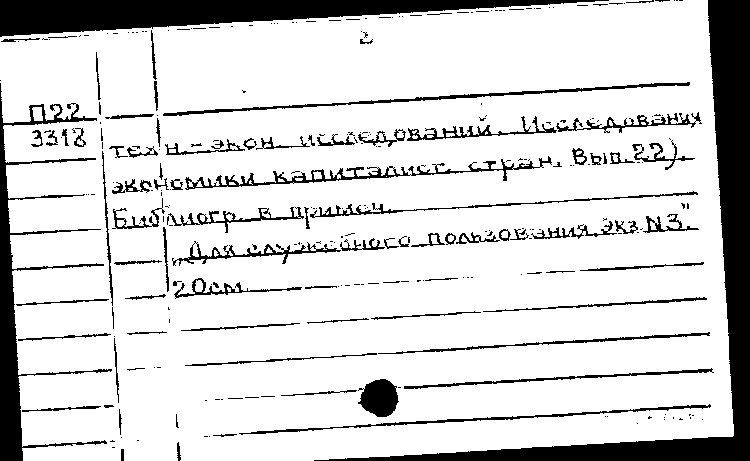 2
П22
3318
техн.-экон. исследований. Исследования
экономики капиталист. стран. Вып. 22).
Библиогр. в примеч.
„Для служебного пользования. Экз N3".
20см